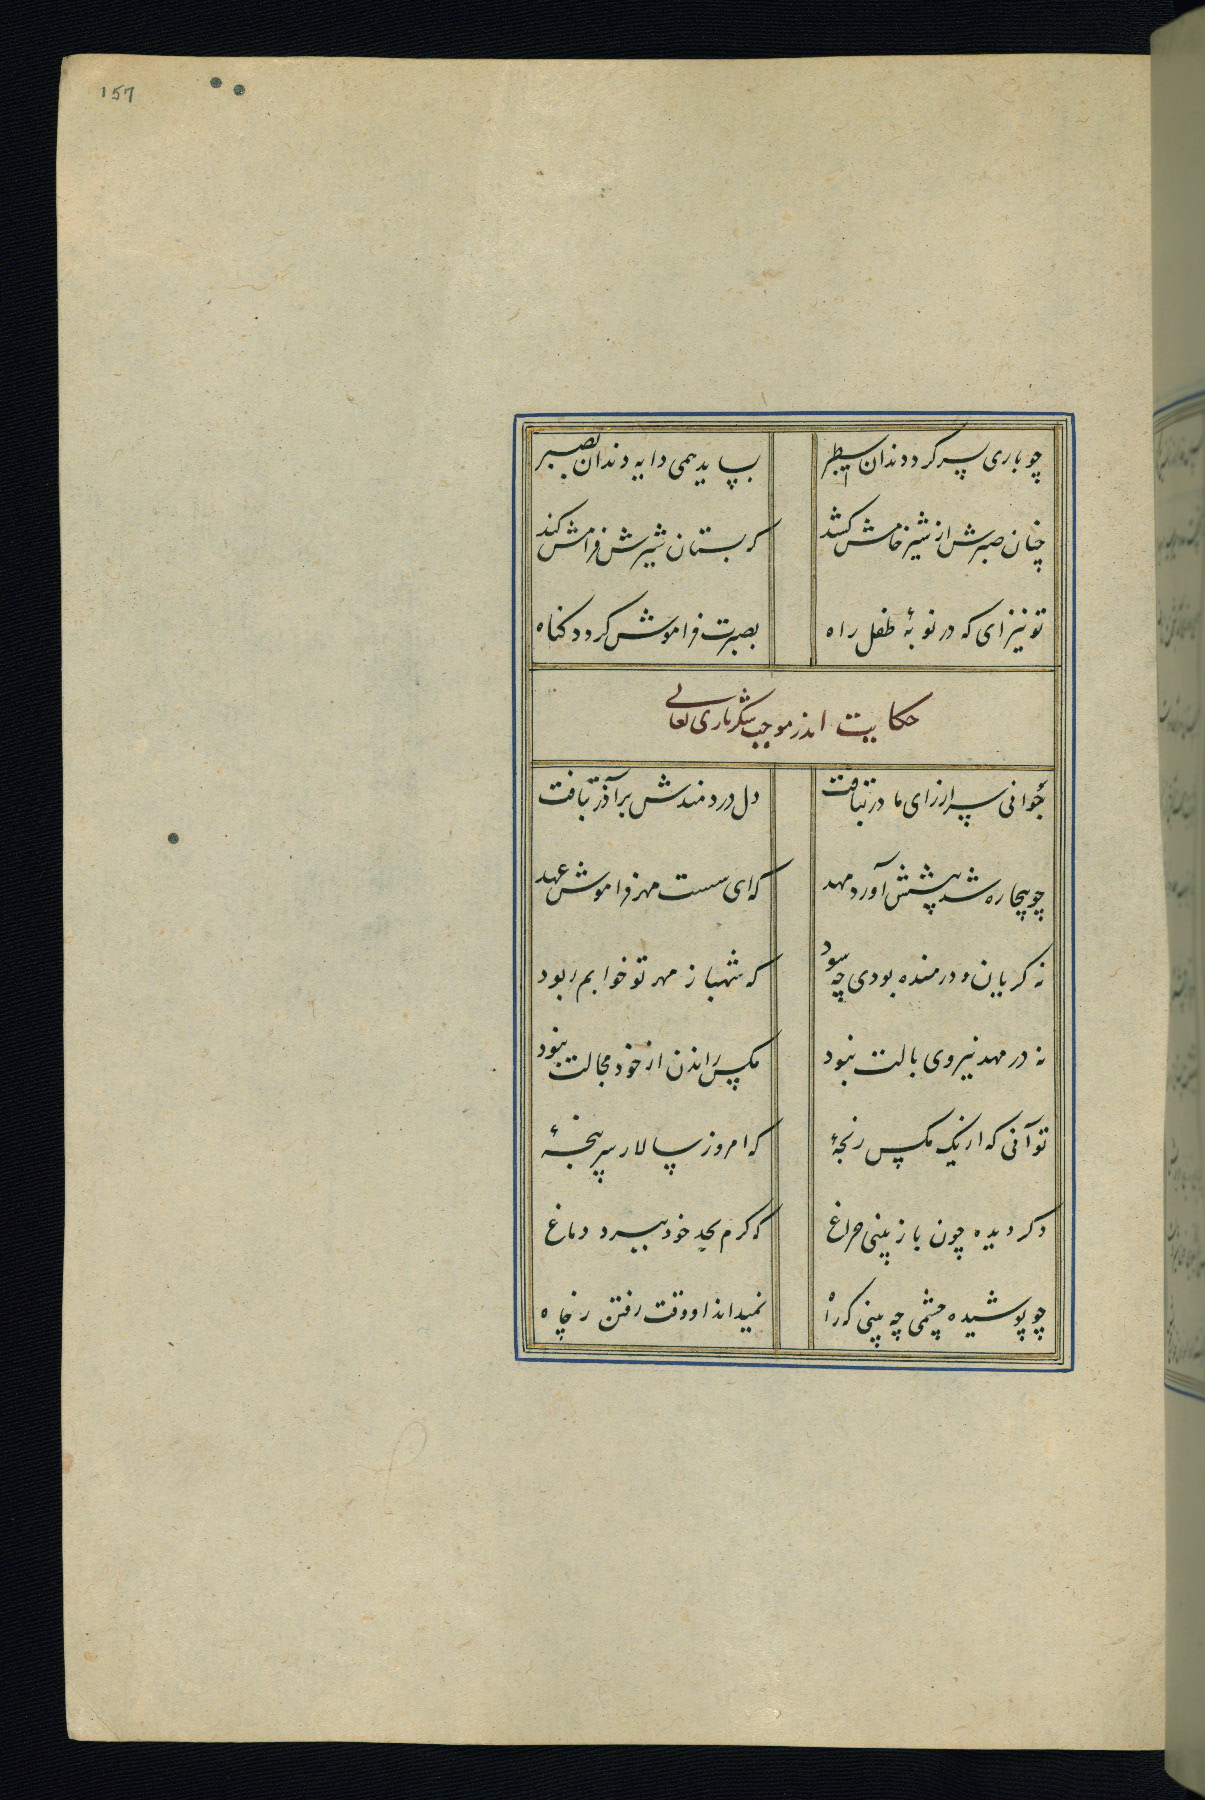 157
چو بازی سر کردد دندان سطبر بپاید همی دایه دندان بصبر
چنان صبرش از شیر خامش کند کر بستان شیرش فرامش کند
تو نیز ای که در توبهٔ طفل راه بصبرت فراموش کردد کناه
حکایت اندر موجب شکر باری تعالی
جوانی سر از رای مادر بتافت دل دردمندش بر آذر بتافت
چو بیچاره شد پیشش آورد مهد که ای سست مهر فراموش عهد
نه کریان و درمنده بودی چه سود که شبها ز مهر تو خوابم ربود
نه در مهد نیروی بالت نبود مکس راندن از خود مجالت نبود
تو آنی که از یک مکس رنجهٔ که امروز سالار سرپنجهٔ
دکر دیده چون باز بینی چراغ که کرم لحد خورد پیه دماغ
چو پوشیده چشمی چه بینی که راه نمیداند او وقت رفتن ز چاه